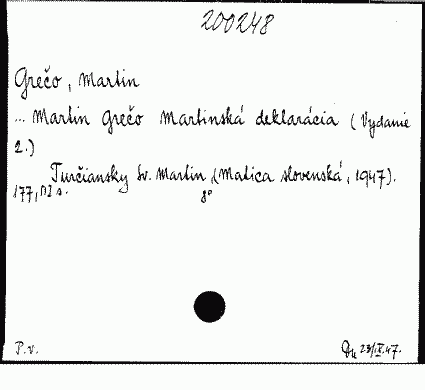 200248
Grečo, Martin
... Martin Grečo Martinská deklarácia (Vydanie
2.)
Turčiansky Sv. Martin, (Matica slovenská, 1947).
177, s. 8°
P.v. 23/IX.47.